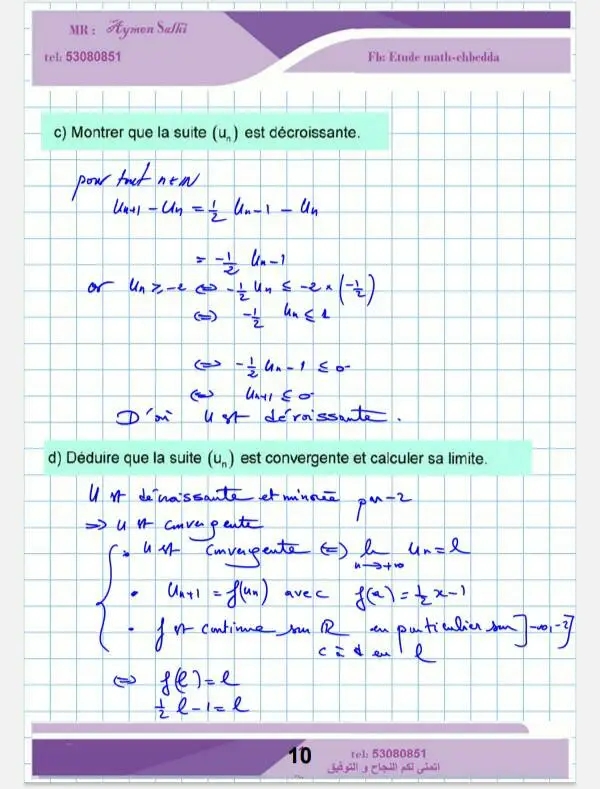 MR : Aymen Salhi
tel: 53080851
Fb: Etude math-chbedda
c) Montrer que la suite (uₙ) est décroissante.
pour tout n∈ℕ
Uₙ₊₁ - Uₙ = 1/2 Uₙ - 1 - Uₙ
= -1/2 Uₙ - 1
or Uₙ ≥ -2 ⇔ -1/2 Uₙ ≤ -2 × (-1/2)
⇔ -1/2 Uₙ ≤ 1
⇔ -1/2 Uₙ - 1 ≤ 0
⇔ Uₙ₊₁ ≤ 0
D'où U est décroissante.
d) Déduire que la suite (uₙ) est convergente et calculer sa limite.
U est décroissante et minorée par -2
⇒ U est convergente
• U est convergente ⇔ lim Uₙ = l
n→+∞
• Uₙ₊₁ = f(Uₙ) avec f(x) = 1/2 x - 1
• f est continue sur ℝ en particulier sur ]-∞, -2]
c à d en l
⇔ f(l) = l
1/2 l - 1 = l
10
tel: 53080851
اتمنى لكم النجاح و التوفيق